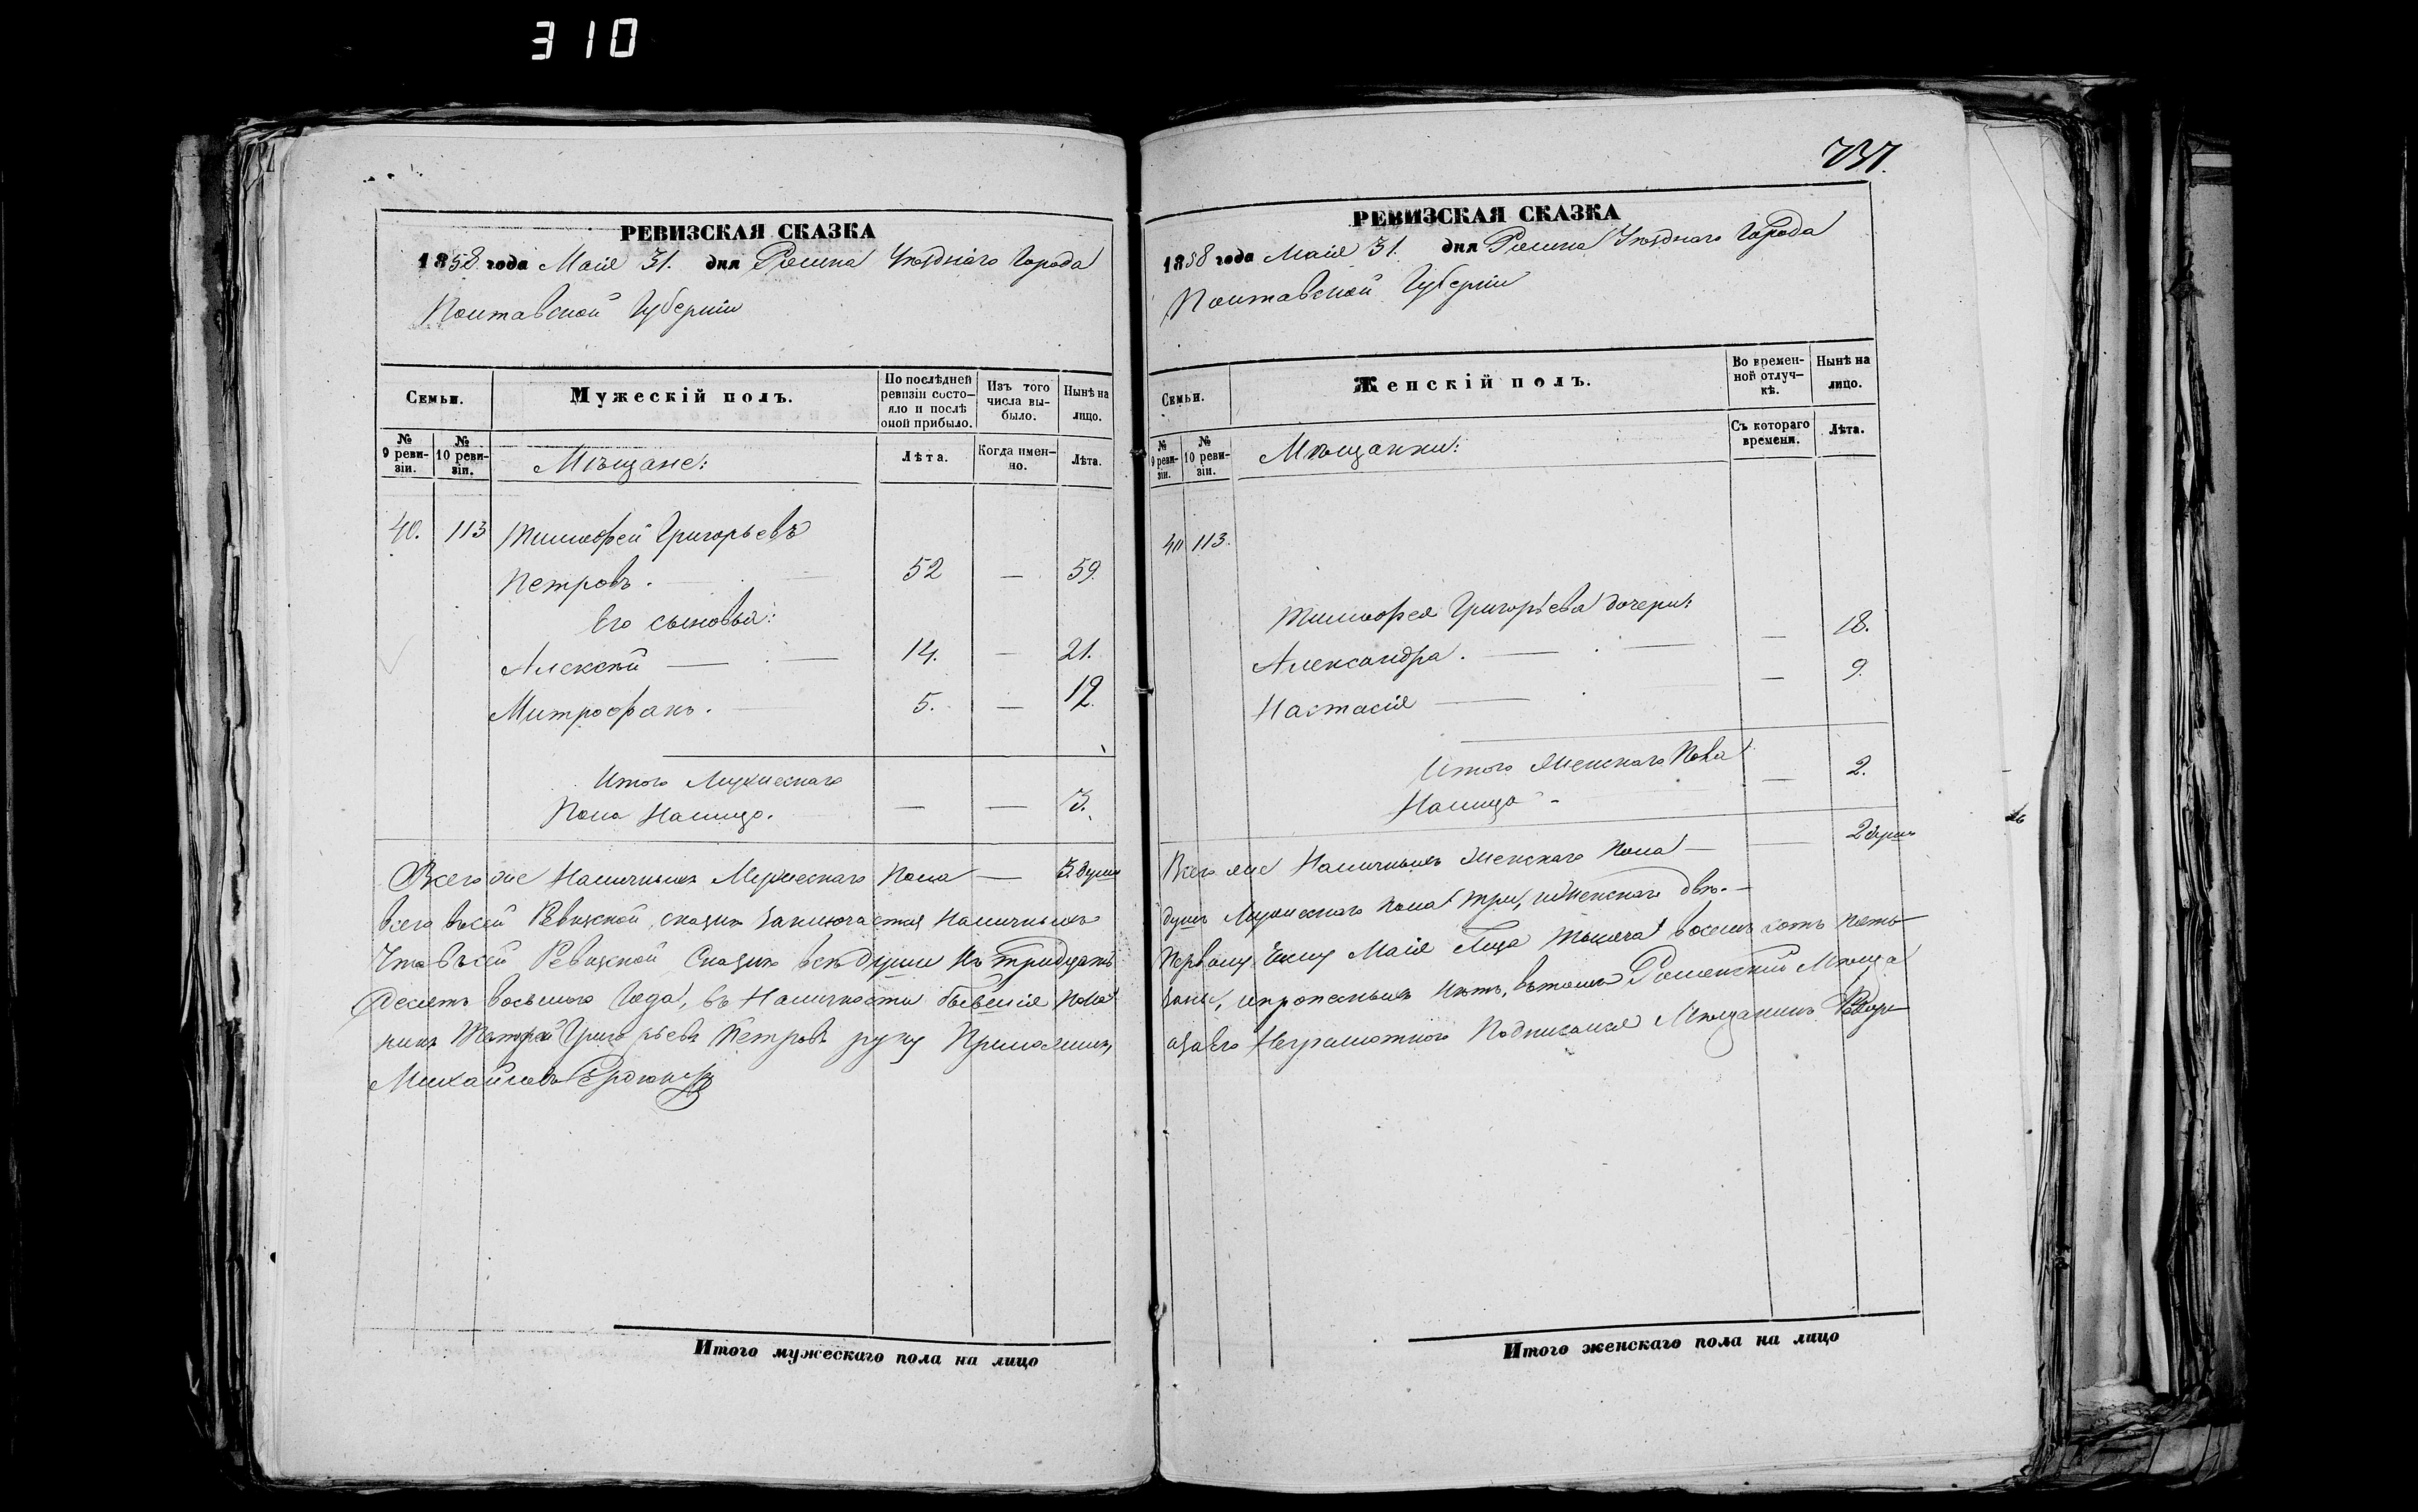 310
737.
РЕВИЗСКАЯ СКАЗКА
1858 года Маія 31. дня Ромна Уѣзднаго Города
Полтавской Губерніи
Семьи.
Мужескій полъ.
По послѣдней ревизіи состояло и послѣ оной прибыло.
Изъ того числа выбыло.
Нынѣ на лицо.
№ 9 ревизіи.
№ 10 ревизіи.
Мѣщане:
Лѣта.
Когда именно.
Лѣта.
40. 113 Тимофей Григорьевъ
Петровъ. 52 — 59.
Его сыновья:
Алексѣй — 14. — 21.
Митрофанъ. 5. — 12.
Итого Мужескаго
Пола Налицо. — — 3.
Всего же Наличныхъ Мужескаго Пола — 3. души
всего въсей Ревизской сказкѣ заключается Наличныхъ
Что въсей Ревизской Сказкѣ всѣ души Къ тридцать
десятъ восьмого Года, въ Наличности бывшія пока
нинъ Тимофей Григорьевъ Петровъ руку Приложилъ,
Михайловъ
Итого мужескаго пола на лицо
РЕВИЗСКАЯ СКАЗКА
1858 года Маія 31. дня Ромна Уѣзднаго Города
Полтавской Губерніи
Семьи.
Женскій полъ.
Во временной отлучкѣ.
Нынѣ на лицо.
№ 9 ревизіи.
№ 10 ревизіи.
Мѣщанки:
Съ котораго времени.
Лѣта.
40 113.
Тимофея Григорьева дочери:
Александра. — 18.
Настасія — 9.
Итого Женскаго Пола
Налицо — 2.
Всего же Наличныхъ Женскаго пола — 2 души
душъ Мужескаго пола три, иЖенскаго двѣ. —
Первому Числу Маія Мца тысяча восемь сотъ пять
заны, ипрописныхъ нѣтъ, вътомъ Роменскій Мѣща
азаего Неграмотного Подписался Мѣщанинъ
Итого женскаго пола на лицо